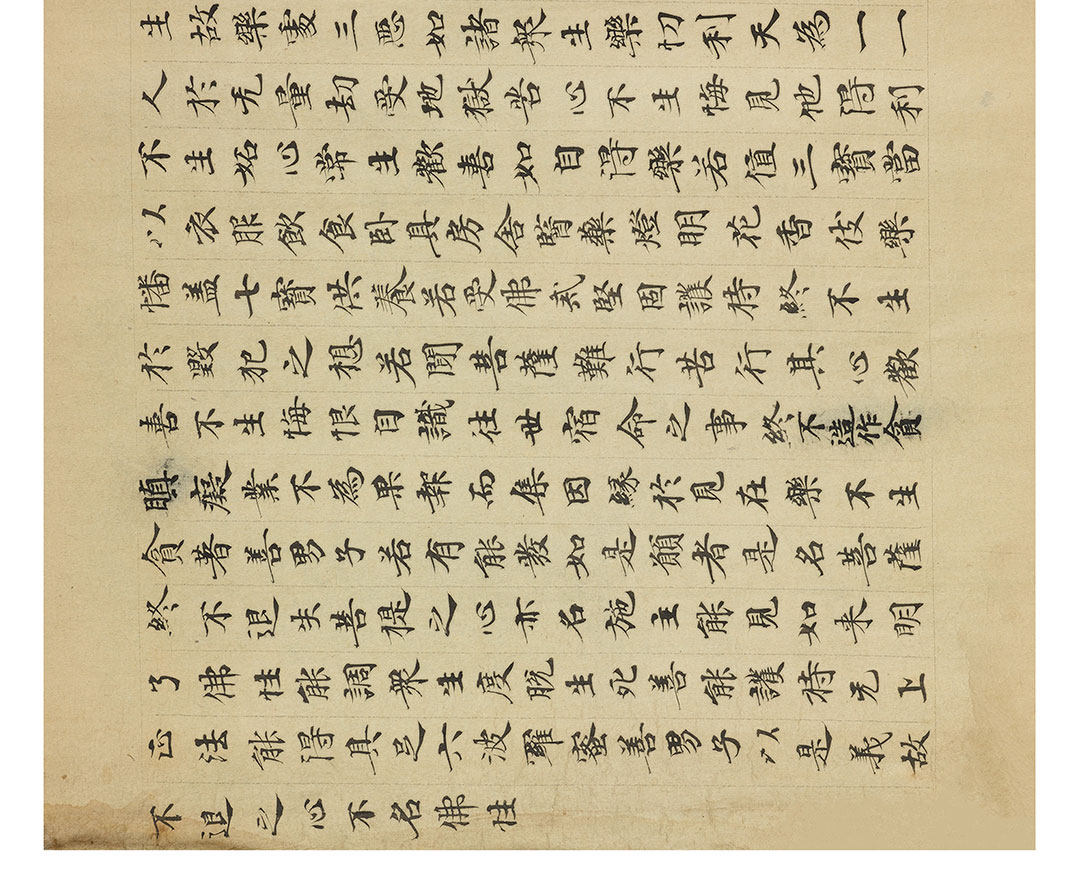 生故樂處三惡如諸衆生樂忉利天為一一
人於无量劫受地獄苦心不生悔見他得利
不生妬心常生歡喜如自得樂若值三寶當
以衣服飲食卧具房舍醫藥燈明花香伎樂
幡盖七寶供養若受佛戒堅固護持終不生
於毀犯之想若聞菩薩難行苦行其心歡
喜不生悔恨自識往世宿命之事終不造作貪
瞋癡業不為果報而集因緣於見在樂不生
貪著善男子若有能發如是願者是名菩薩
終不退失菩提之心亦名施主能見如来明
了佛性能調衆生度脫生死善能護持无上
正法能得具足六波羅蜜善男子以是義故
不退之心不名佛性